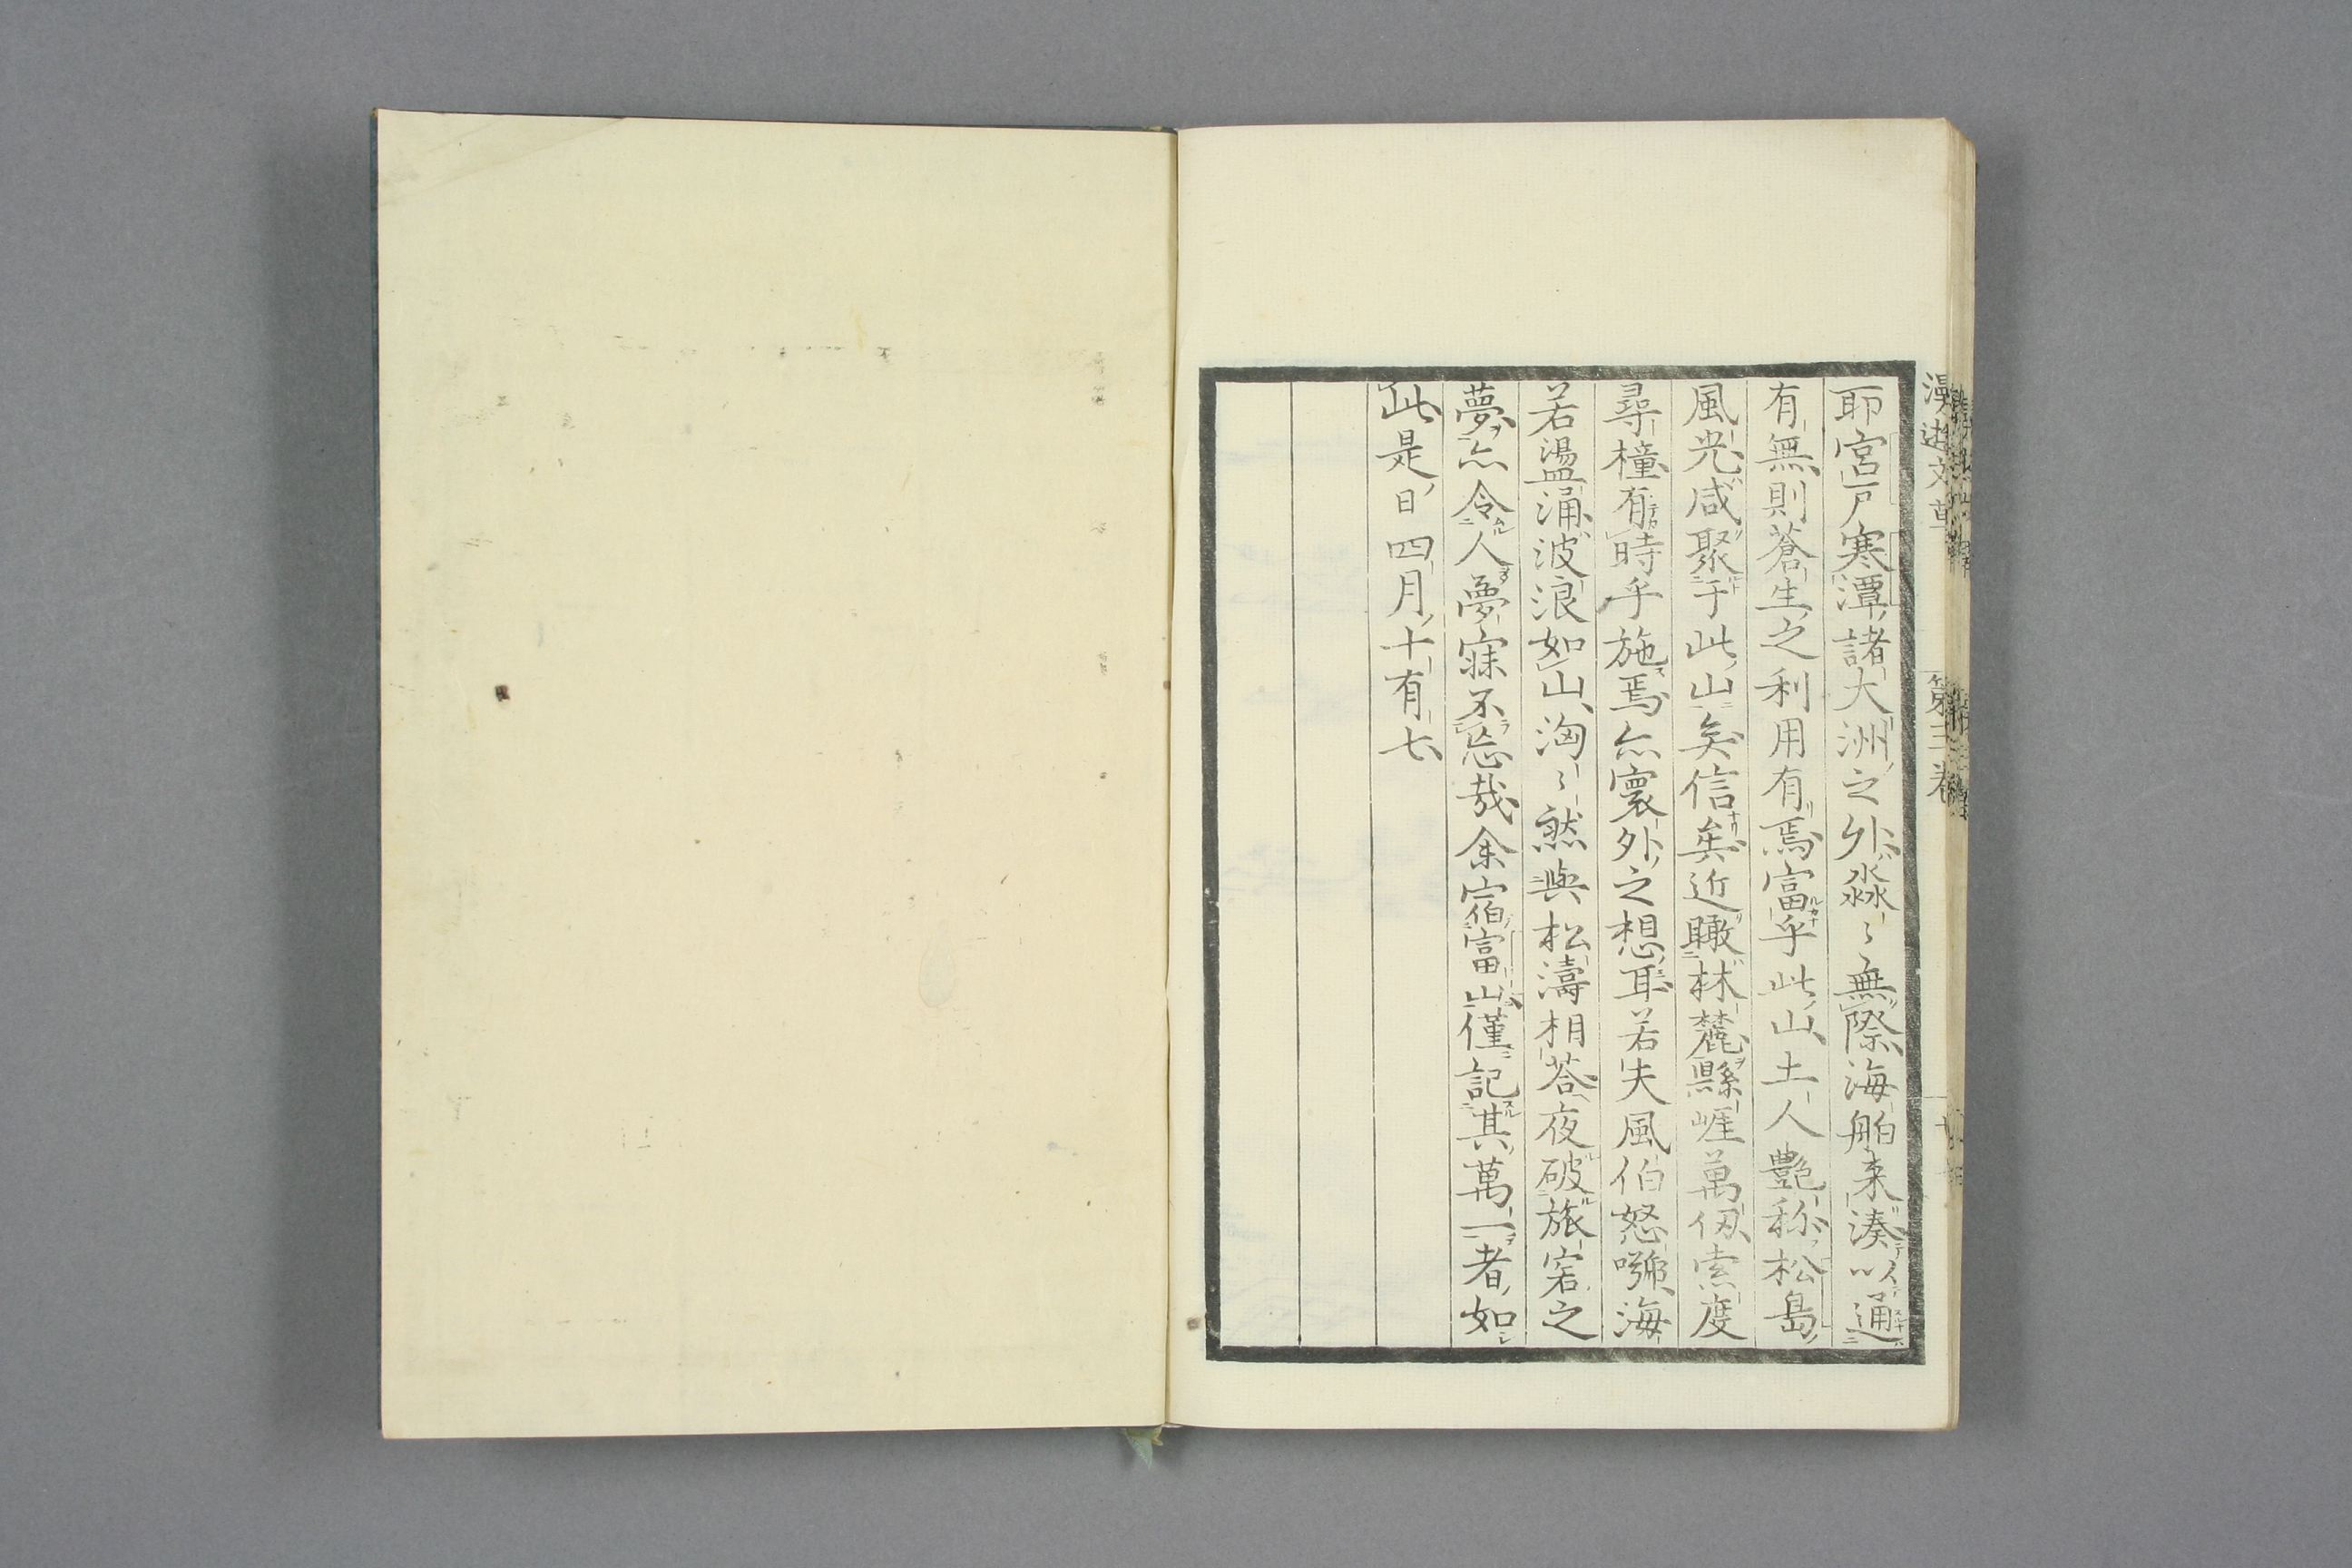 耶宮戸寒潭諸大洲之外淼〻無際海舶来湊以通
有無則蒼生之利用有焉富乎此山土人艶称松島
風光咸聚于此山矣信矣近瞰林麓縣崕萬仭索度
尋橦有時乎施焉亦寰外之想耳若夫風伯怒号海
若盪涌波浪如山洶〻然與松濤相荅夜破旅宕之
夢亦令人夢寐不忘哉余宿富山僅記其萬一者如
此是日四月十有七
漫遊文草
第三巻